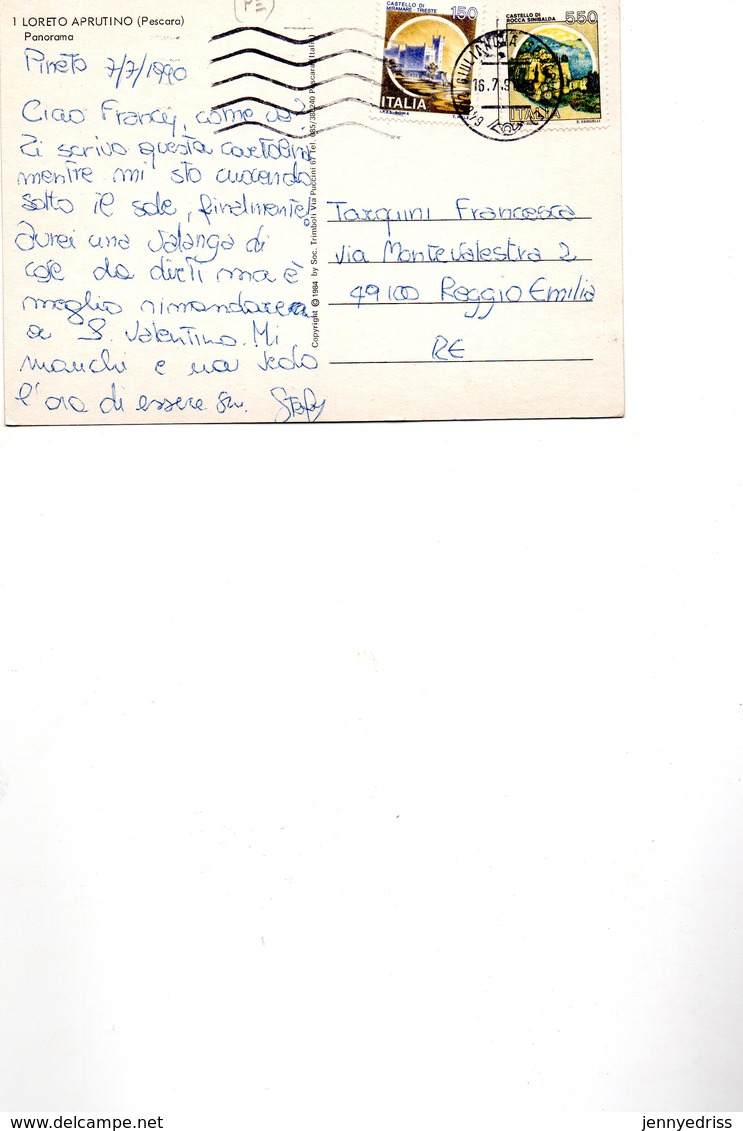 1 LORETO APRUTINO (Pescara)
Panorama
PE
CASTELLO DI
MIRAMARE - TRIESTE
150
ITALIA
I.P.Z.S. ROMA
CASTELLO DI
ROCCA SINIBALDA
550
ITALIA
E. VANGELLI
GIULIANOVA
16.7.9
Pineto 7/7/1990
Ciao Francy, come va?
Ti scrivo questa cartolina
mentre mi sto cuocendo
sotto il sole, finalmente!
Avrei una valanga di
cose da dirti ma è
meglio rimandare
a S. Valentino. Mi
manchi e non vedo
l'ora di essere su. Stefy
Copyright © 1984 by Soc. Trimboli Via Puccini 67 Tel. 085/38240 Pescara (Italia)
Tarquini Francesca
Via Monte Valestra 2
49100 Reggio Emilia
RE
jennyedriss